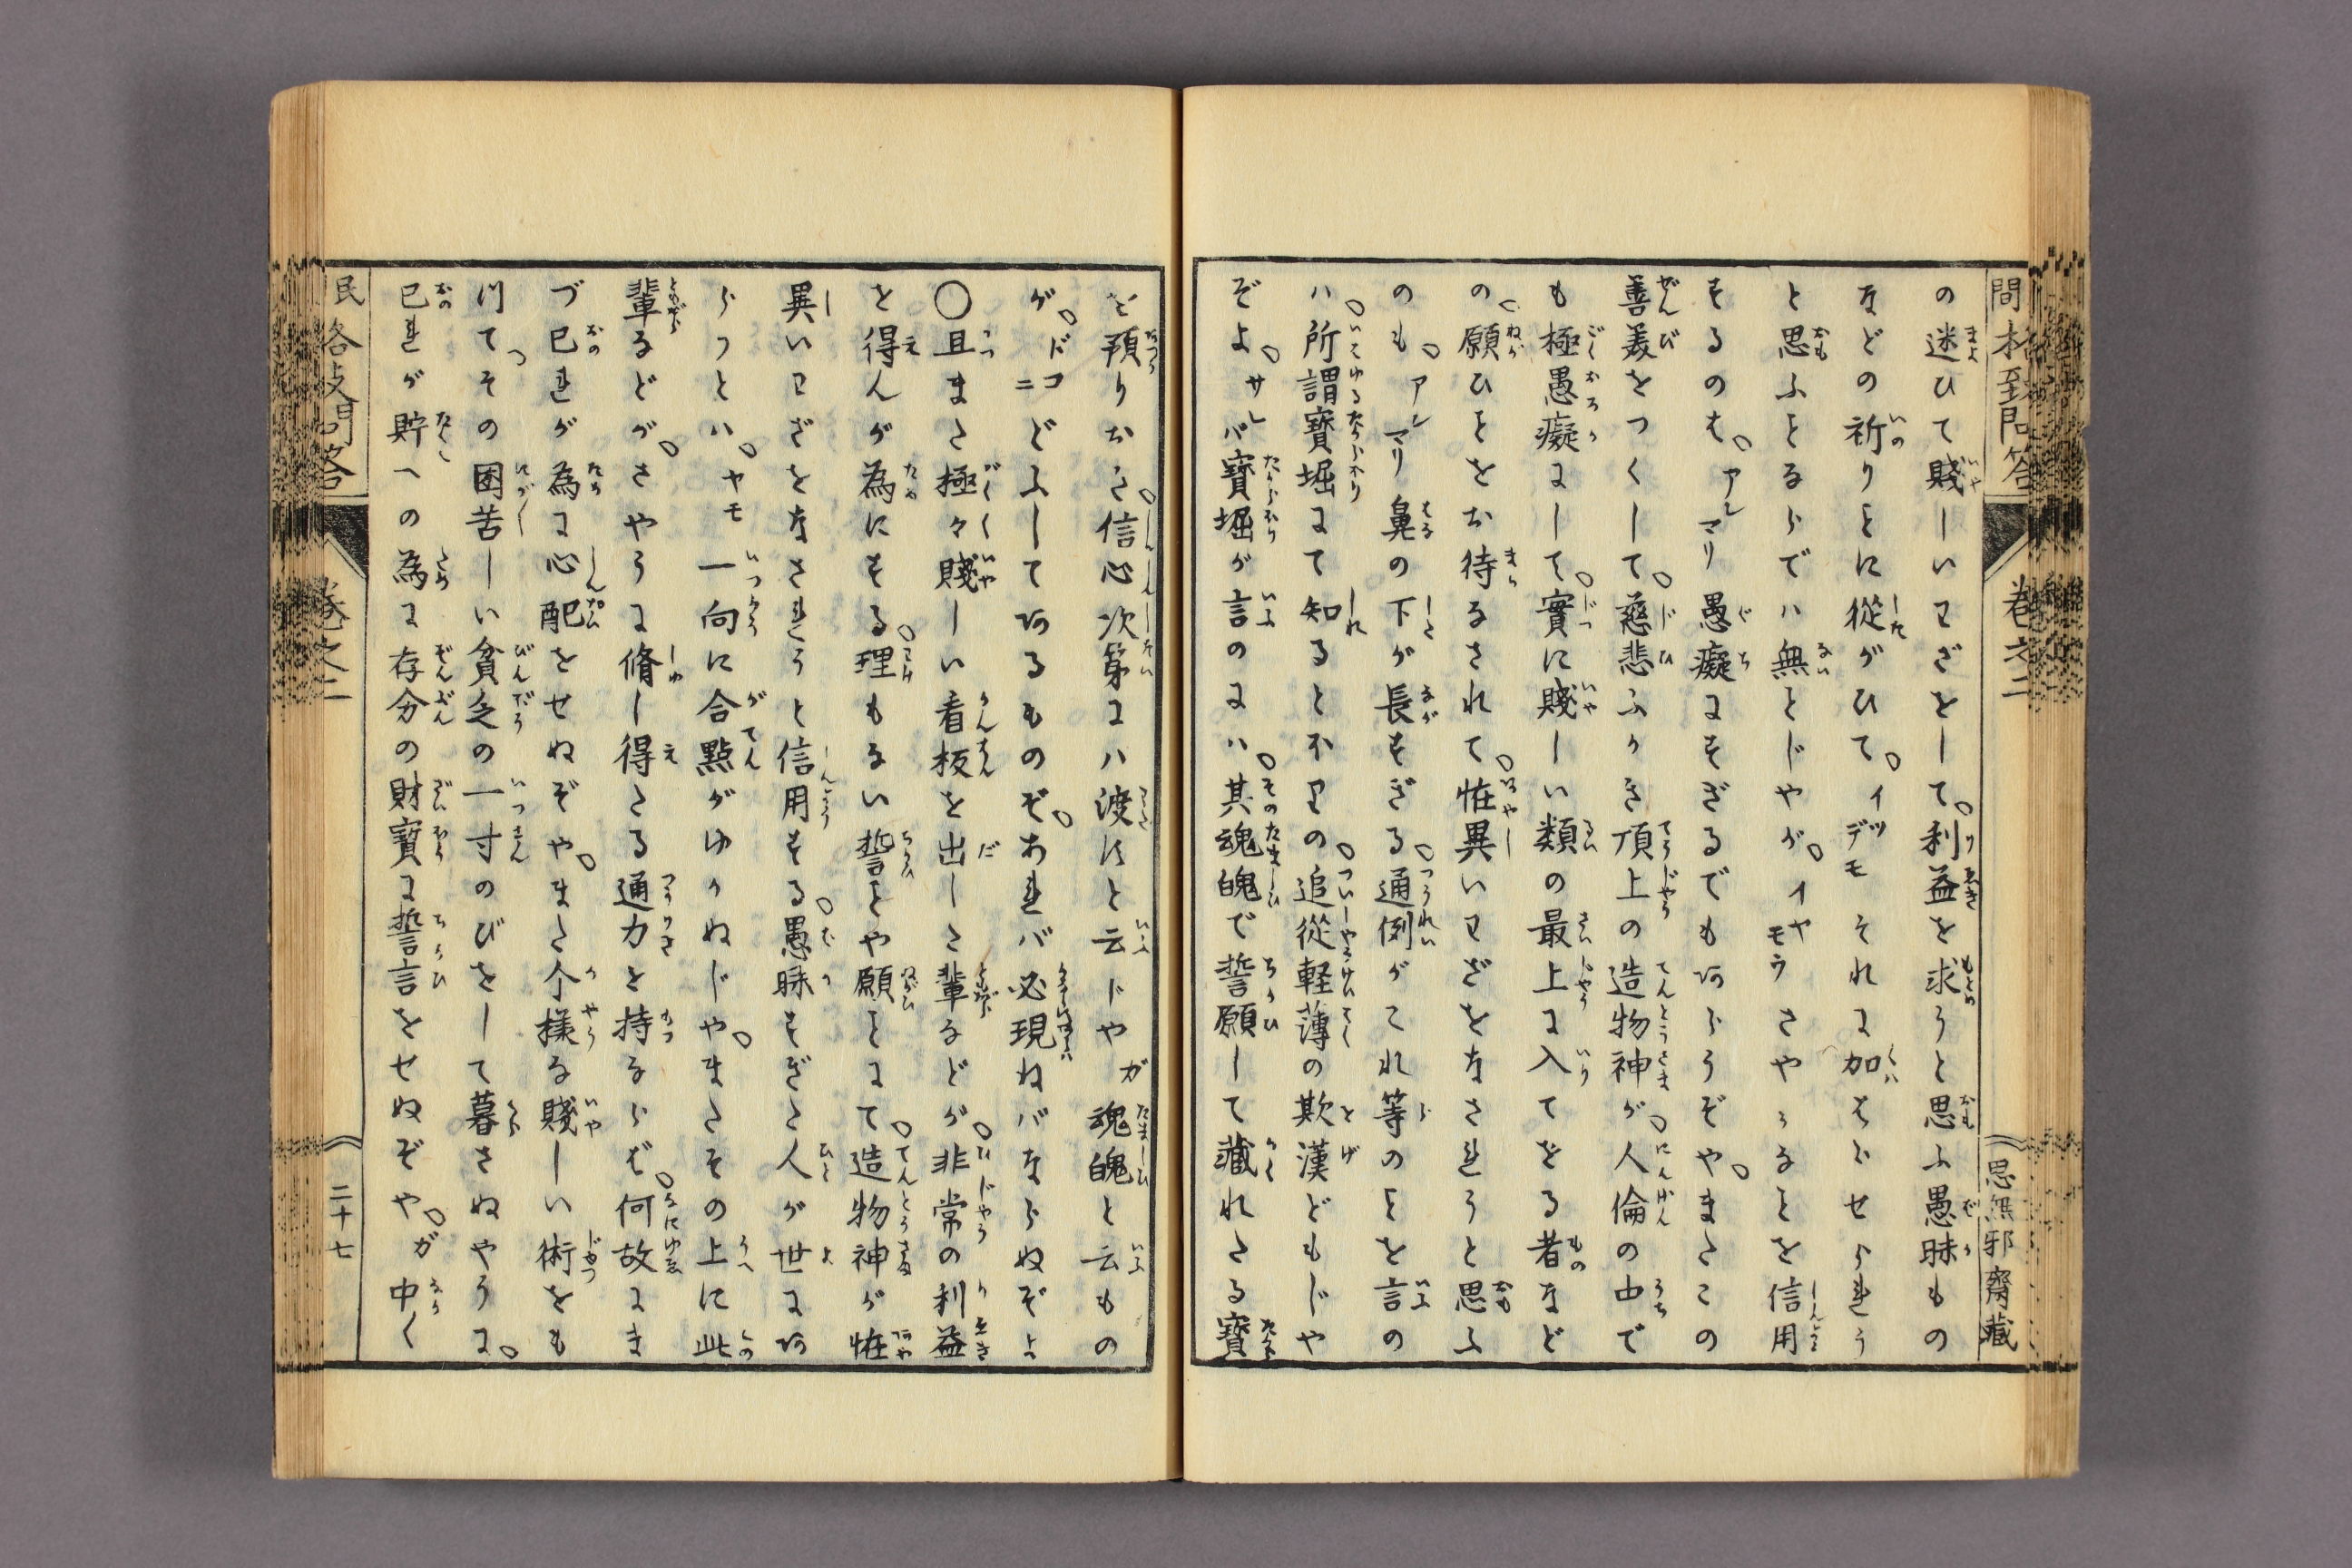 の迷ひて賤しいわざをして。利益を求うと思ふ愚昧もの
などの祈りヿに從がひて。イツデモそれに加はらせられう
と思ふヿならでハ無ヿじやが。イヤモウさやうなヿを信用
するのは。アンマリ愚癡にすぎるでもあらうぞや。またこの
善美をつくして。慈悲ふかき頂上の造物神が。人倫の中で
も極愚癡にして。實に賤しい類の最上に入てをる者など
の。願ひヿをお待なされて。恠異いわざをなされうと思ふ
のも。アンマリ鼻の下が長すぎる。通例がこれ等のヿを言の
ハ。所謂寶堀にて知るとホリの。追從軽薄の欺漢どもじや
ぞよ。サレバ寶堀が言のにハ。其魂魄で誓願して藏れたる寶
を預りおき。信心次第にハ渡すと云ドやガ魂魄と云もの
が。ドコニどふしてあるものぞ。あれバ必現ねバならぬぞよ
〇且また極々賤しい看板を出した輩などが。非常の利益
を得んが為にする。理もない誓ヿや願ヿにて。造物神が恠
異いわざをなされうと信用する。愚昧すぎた人が世にあ
らうとハ。ヤモ一向に合點がゆかぬじや。またその上に此
輩などが。さやうに脩し得たる通力を持ならば。何故にま
づ己れが為に心配をせぬぞや。また个樣な賤しい術をも
つて。その困苦しい貧乏の一寸のびをして暮さぬやうに。
己れが貯への為に存分の財寶に誓言をせぬぞや。ガ中く
卷之二
思無邪齋藏
二十七